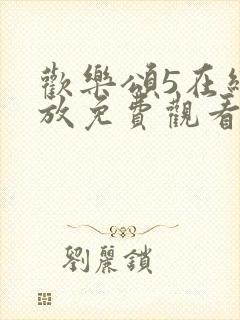 歡樂頌5在
放免費觀看
劉麗鎖